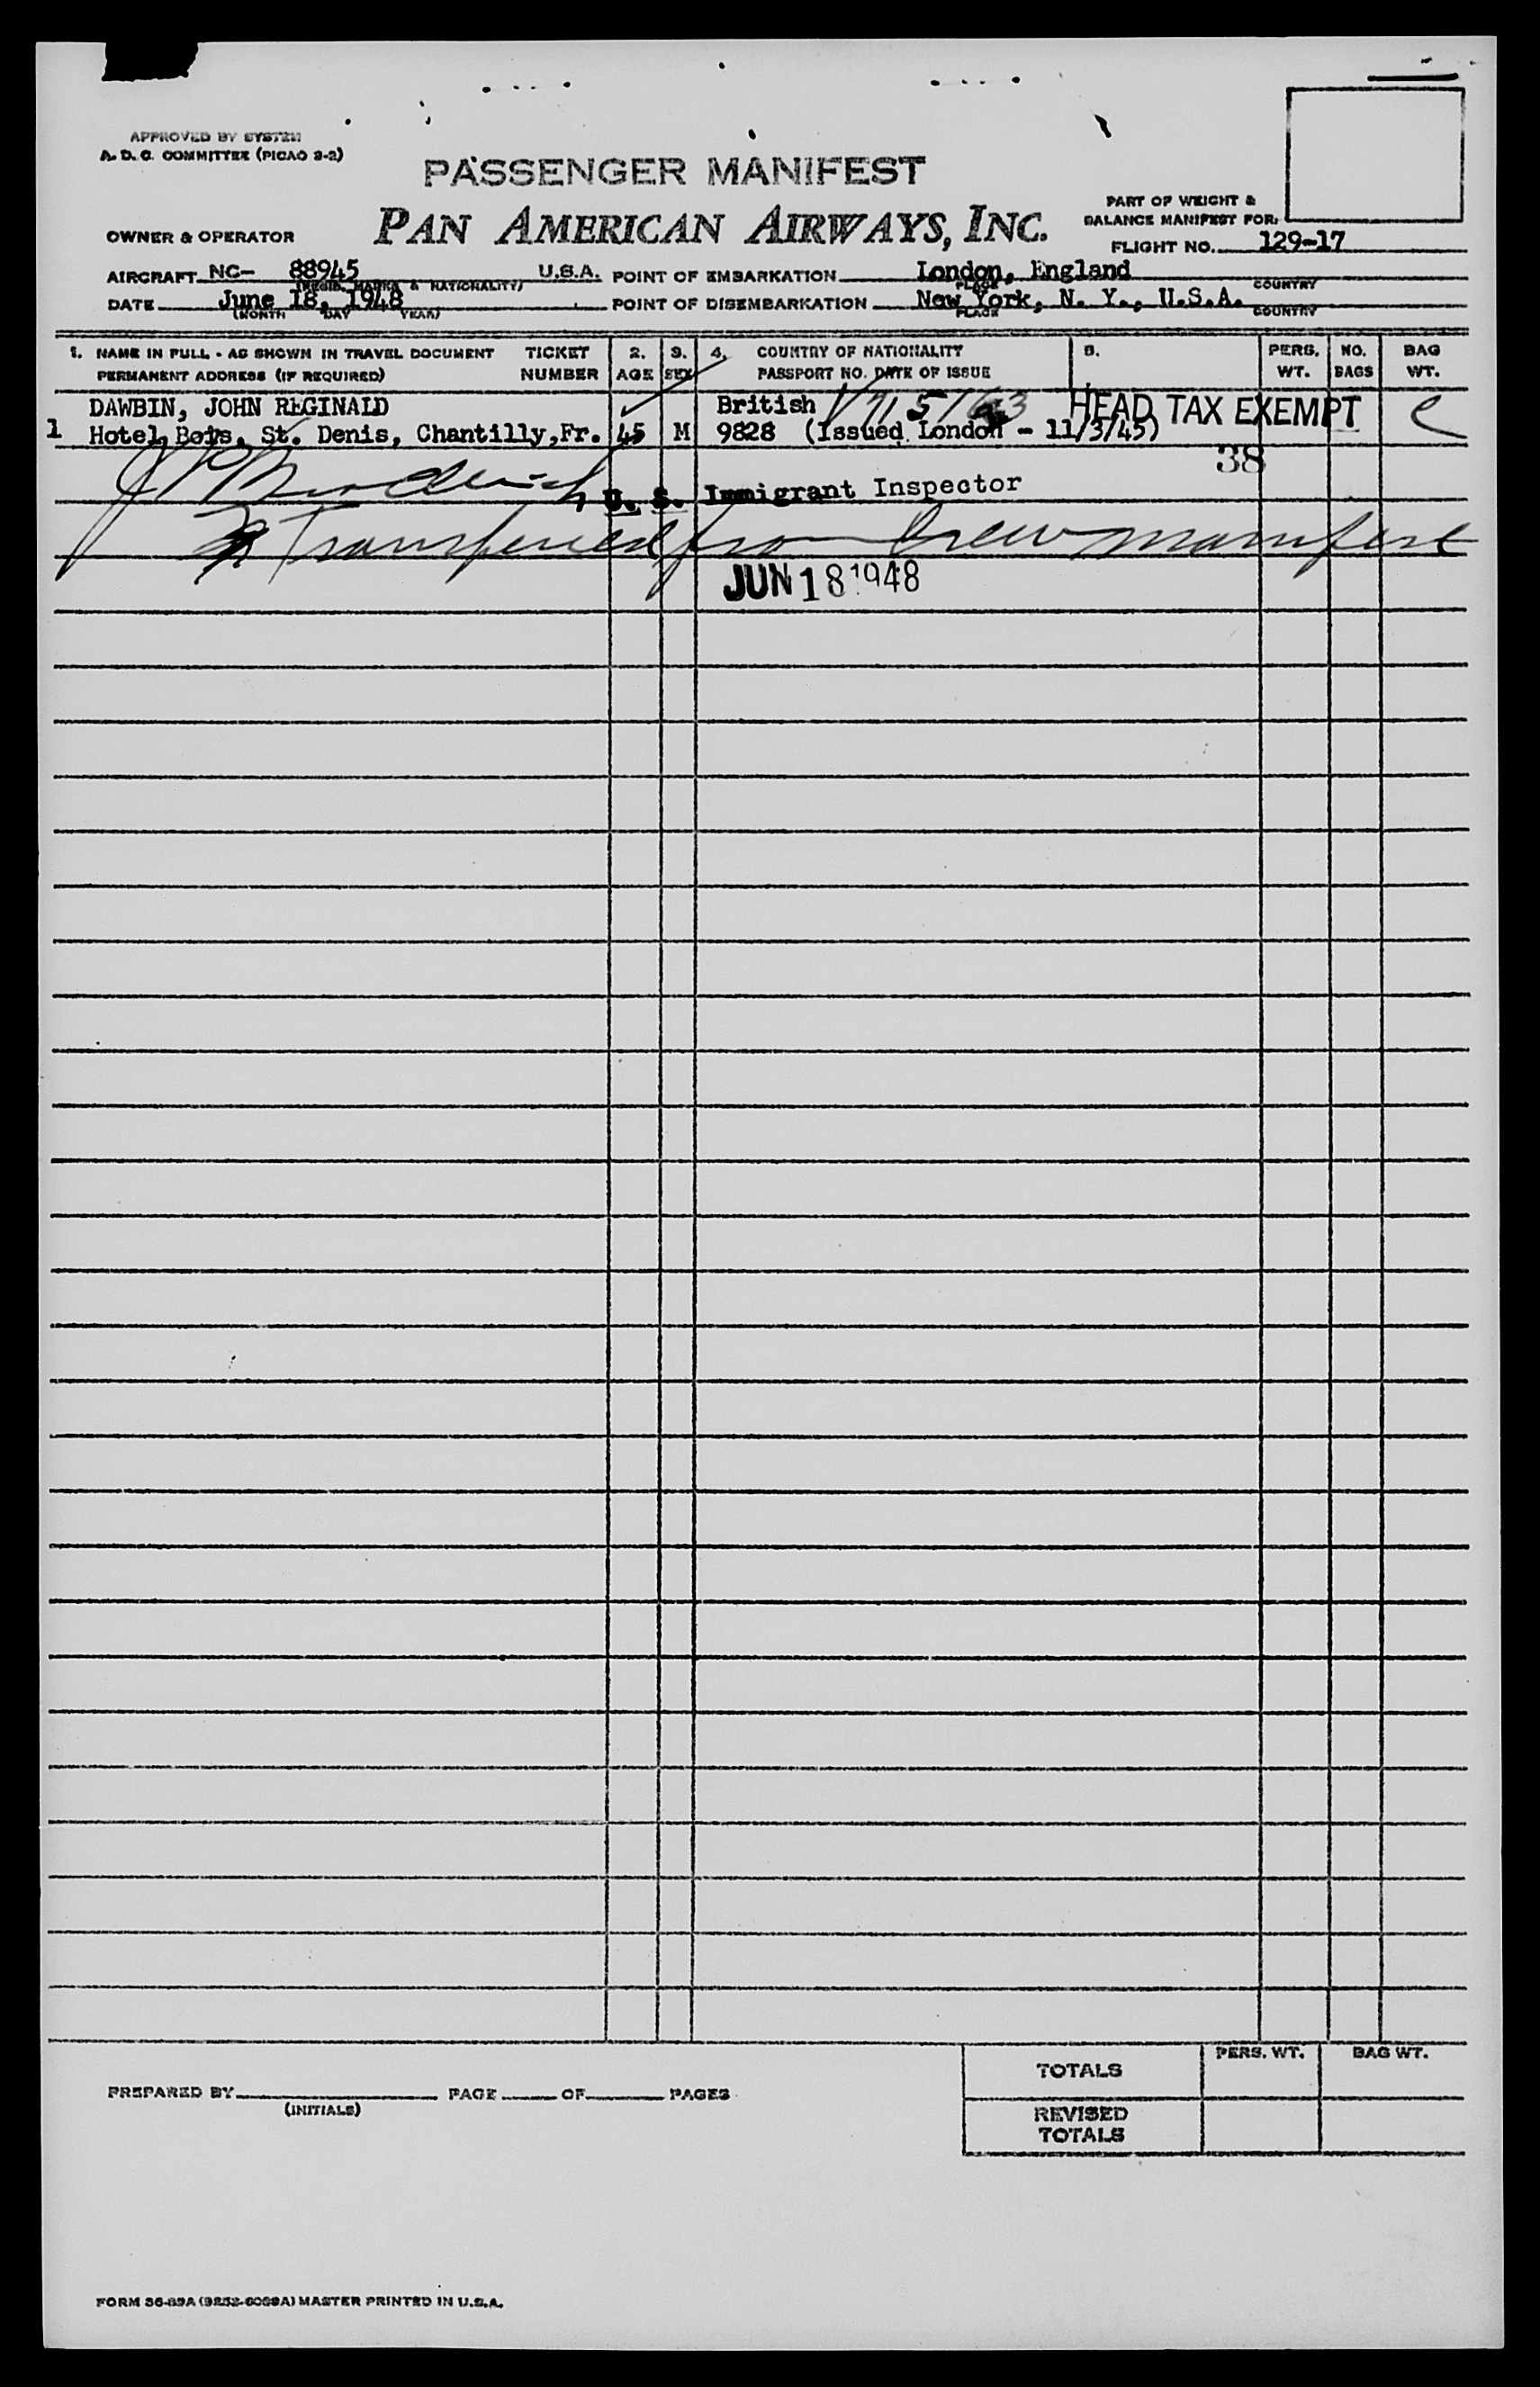 APPROVED BY SYSTEM
A. D. C. COMMITTEE (PICAO 3-2)
PASSENGER MANIFEST
PART OF WEIGHT &
BALANCE MANIFEST FOR:
OWNER & OPERATOR PAN AMERICAN AIRWAYS, INC.
FLIGHT NO. 129-17
AIRCRAFT NC- 88945 U.S.A. POINT OF EMBARKATION London, England
(REGIS. MARKS & NATIONALITY) PLACE COUNTRY
DATE June 18, 1948 POINT OF DISEMBARKATION New York, N. Y., U.S.A.
(MONTH DAY YEAR) PLACE COUNTRY
1. NAME IN FULL - AS SHOWN IN TRAVEL DOCUMENT TICKET 2. 3. 4. COUNTRY OF NATIONALITY 5. PERS. NO. BAG
PERMANENT ADDRESS (IF REQUIRED) NUMBER AGE SEX PASSPORT NO. DATE OF ISSUE WT. BAGS WT.
DAWBIN, JOHN REGINALD British HEAD TAX EXEMPT
1 Hotel Bois, St. Denis, Chantilly, Fr. 45 M 9828 (Issued London - 11/3/45)
38
U. S. Immigrant Inspector
Transferred from Crew manifest
JUN 18 1948
TOTALS PERS. WT. BAG WT.
PREPARED BY PAGE OF PAGES
(INITIALS)
REVISED
TOTALS
FORM 36-83A (9252-6069A) MASTER PRINTED IN U.S.A.